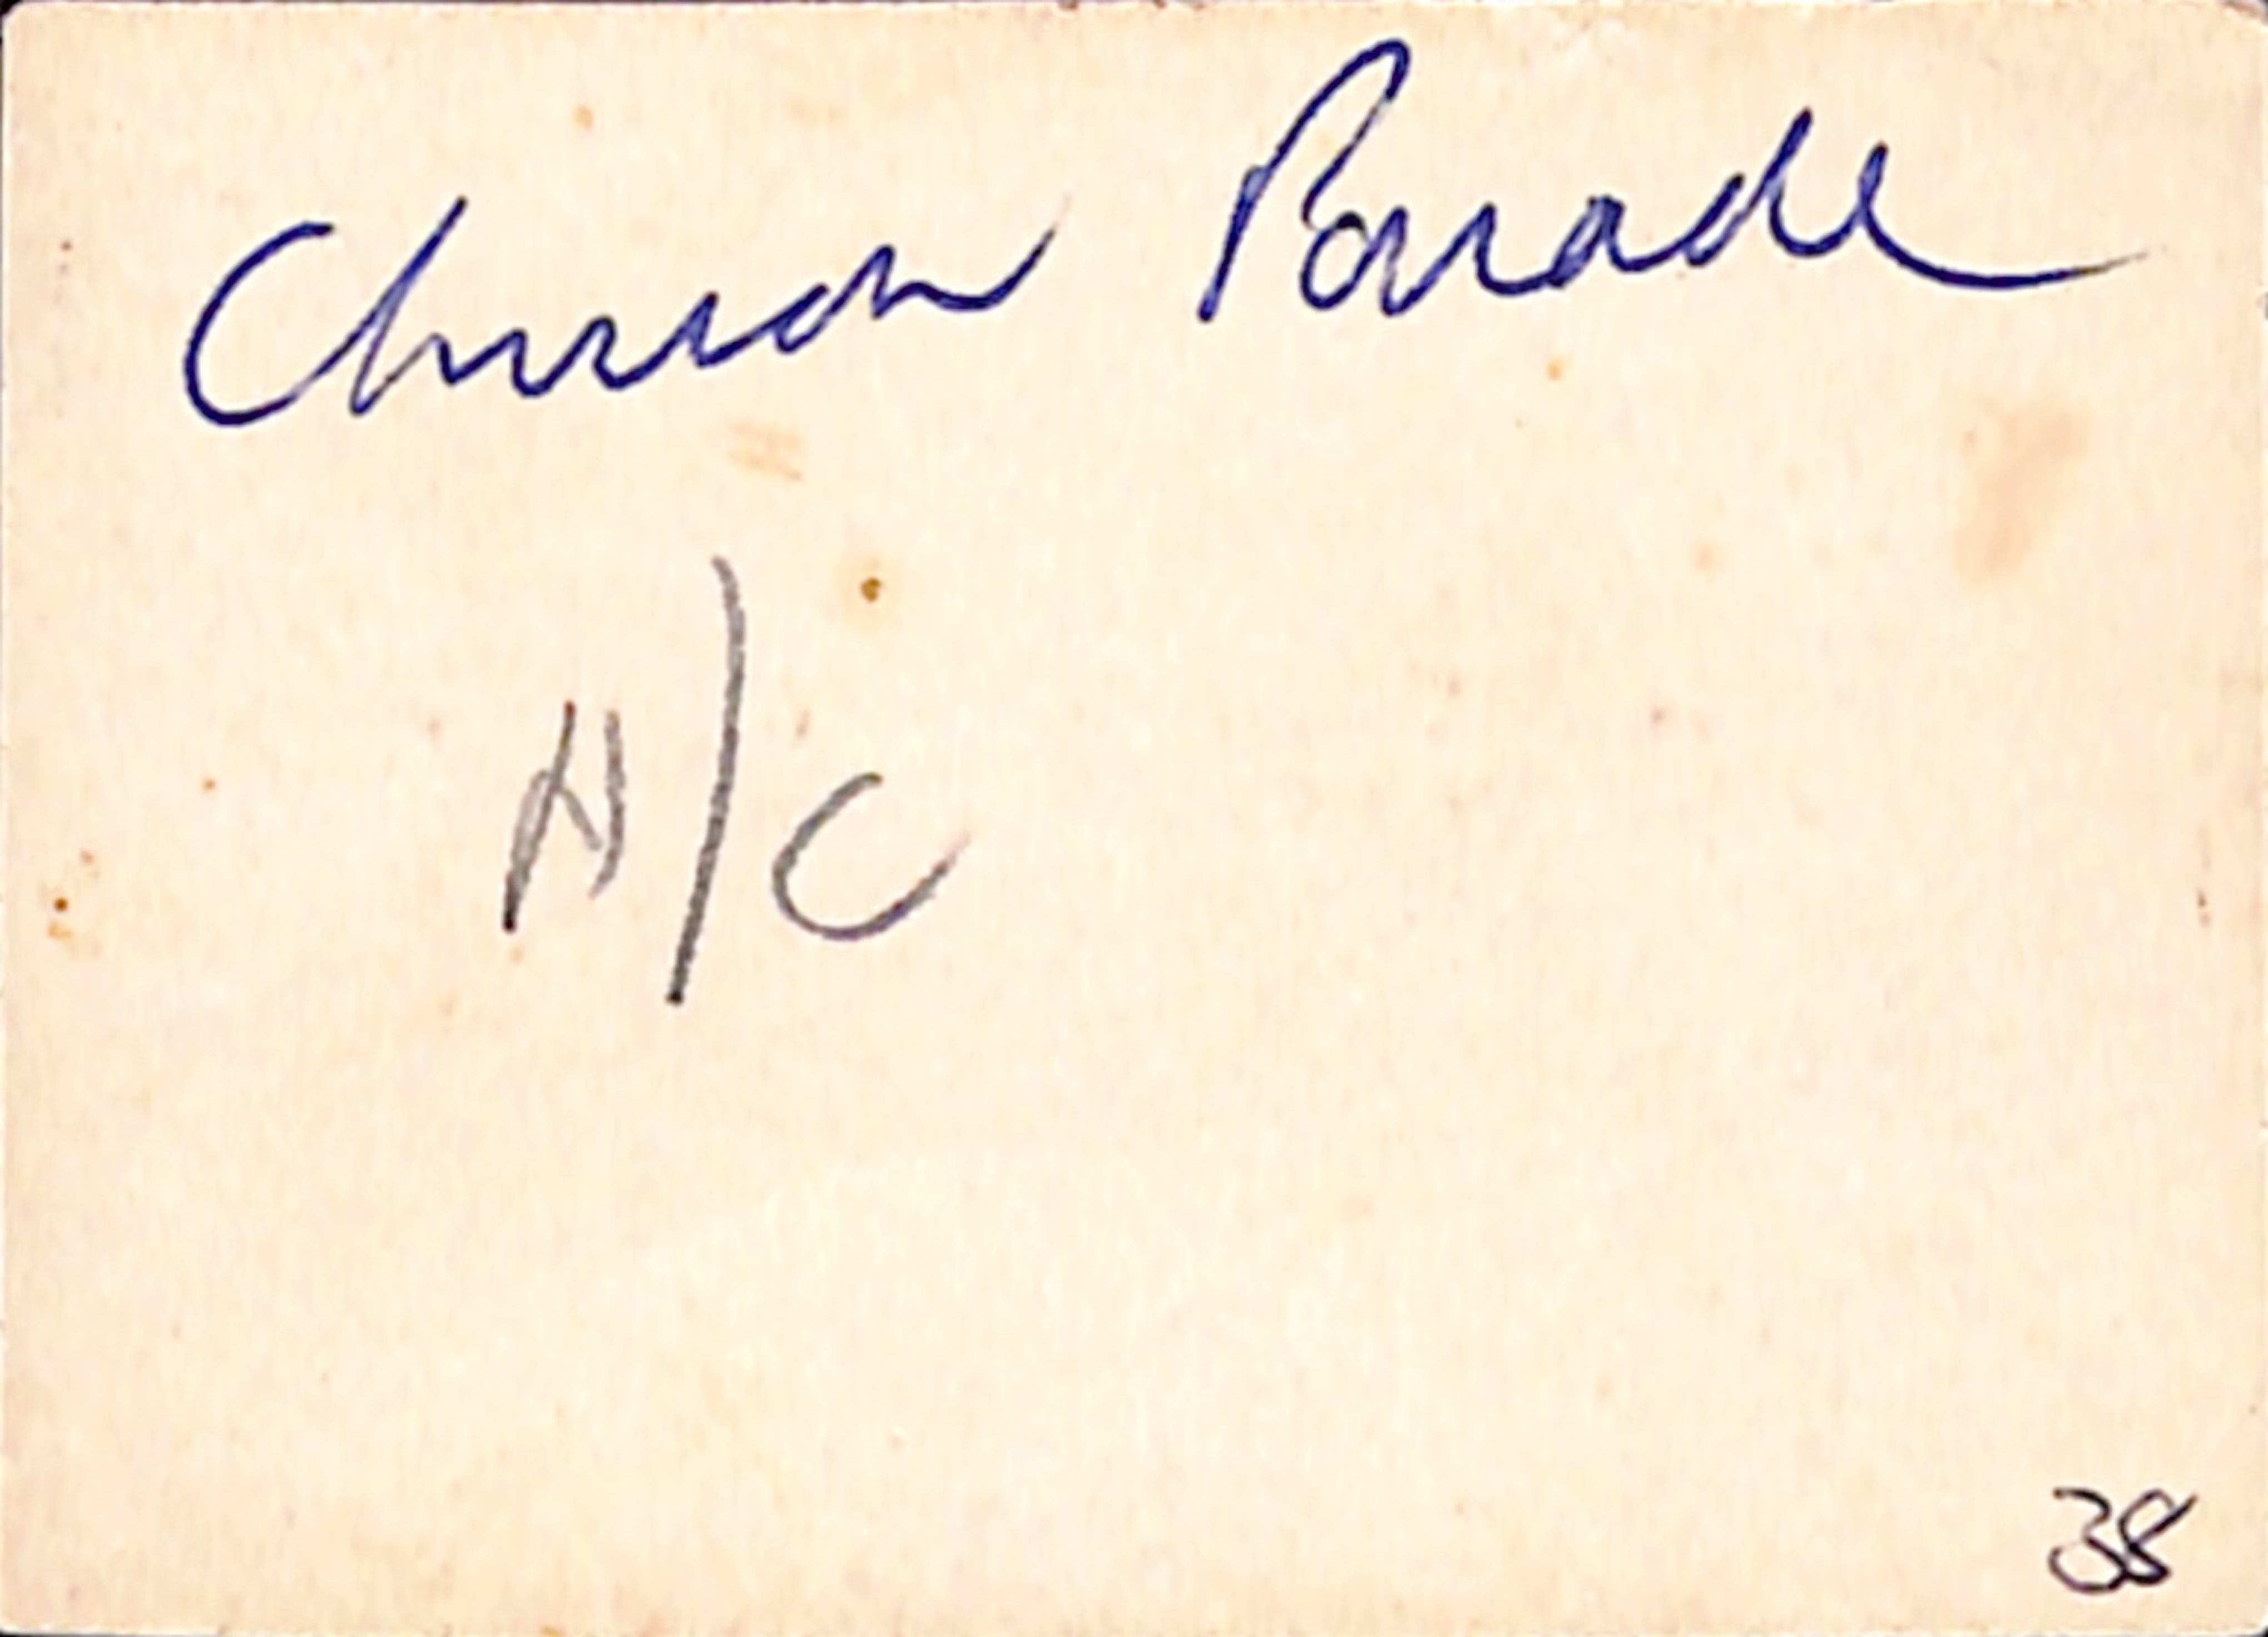 Church Parade
N/C
38